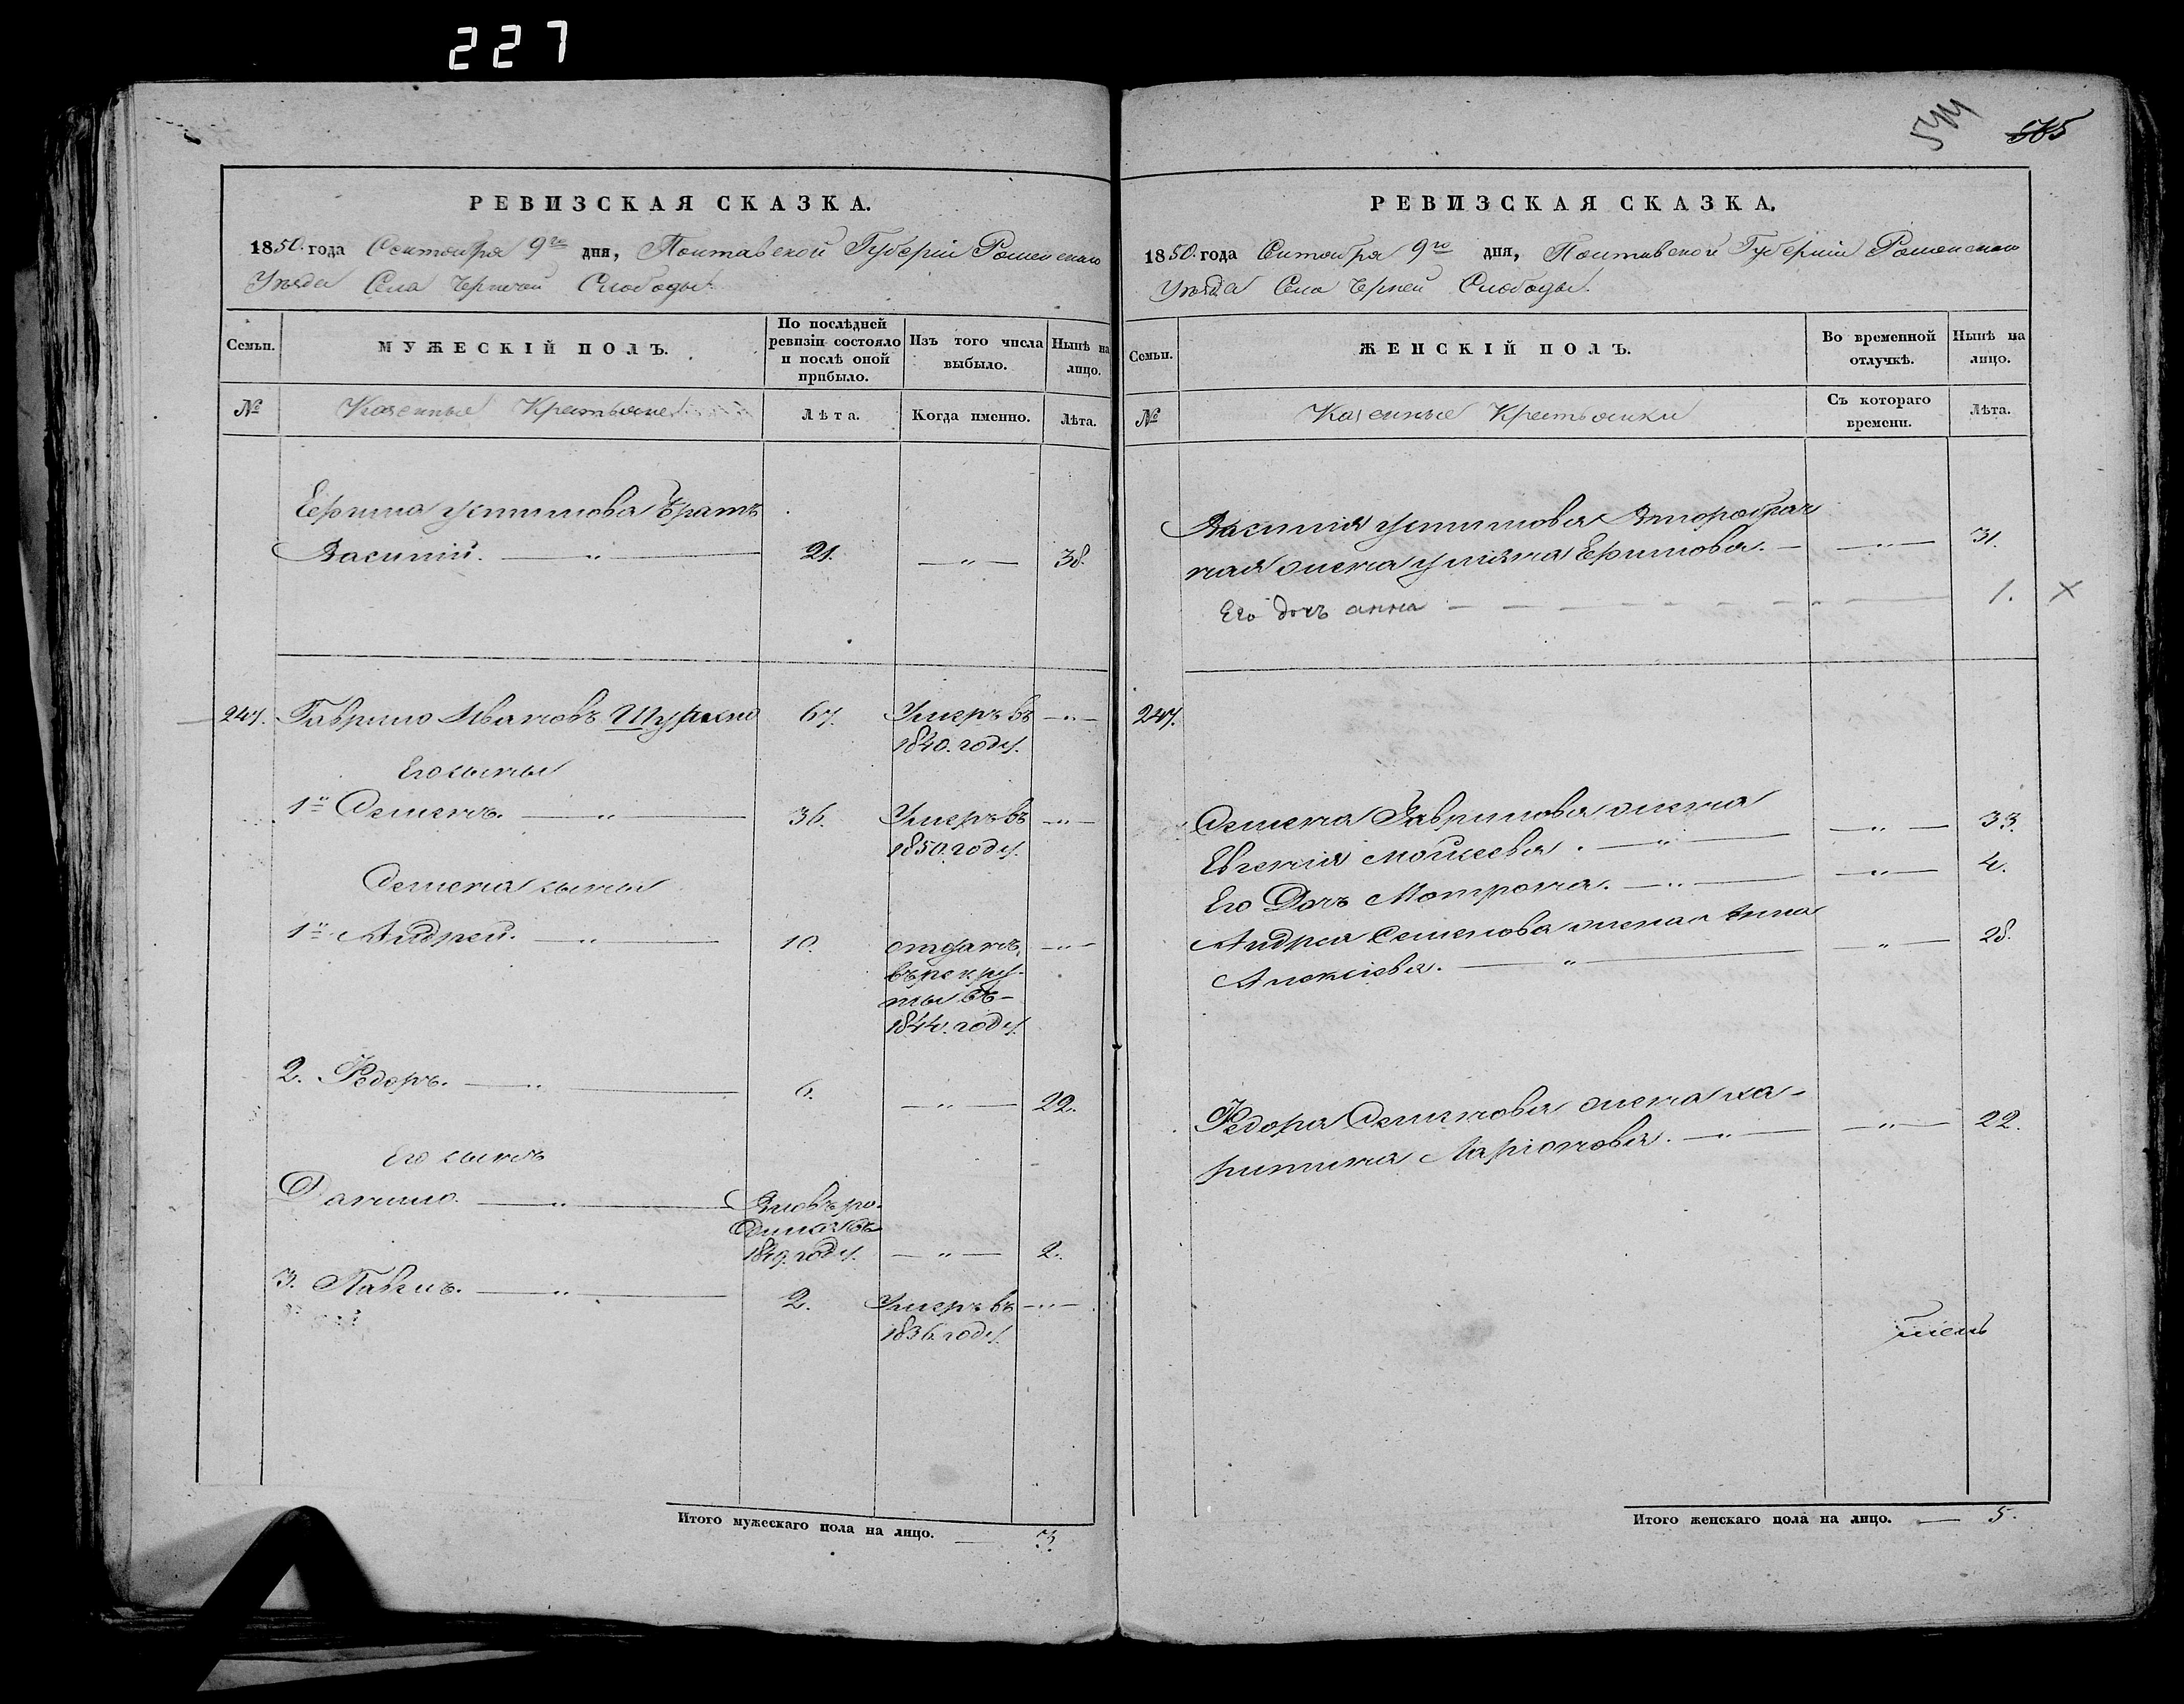 227
544 585
РЕВИЗСКАЯ СКАЗКА.
1850. года Сентября 9го дня, Полтавской Губерніи Роменскаго
Уѣзда Села Чернечей Слободы.
Семьи.
МУЖЕСКІЙ ПОЛЪ.
По послѣдней ревизіи состояло и послѣ оной прибыло.
Изъ того числа выбыло.
Нынѣ на лицо.
№
Казенные Крестьяне
Лѣта.
Когда именно.
Лѣта.
Ефима Устимова Братъ
Василий. — " — 21. — " — 38.
247. Гаврило Ивановъ 67. Умеръ въ — " —
1840. году.
Его сыны
1й Семенъ. — " — 36. Умеръ въ — " —
1850. году.
Семена сыны
1й Андрей. — " — 10. отданъ — " —
въ рекру-
ты въ
1844. году.
2. Федоръ. — " — 6. — " — 22.
Его сынъ
Данило. — " — Вновь ро-
дился въ
1849. году. — " — 2.
3. Павелъ. — " — 2. Умеръ въ — " —
1836. году.
Итого мужескаго пола на лицо. — 3.
РЕВИЗСКАЯ СКАЗКА.
1850. года Сентября 9го дня, Полтавской Губерніи Роменскаго
Уѣзда Села Черней Слободы.
Семьи.
ЖЕНСКІЙ ПОЛЪ.
Во временной отлучкѣ.
Нынѣ на лицо.
№
Казенные Крестьянки
Съ котораго времени.
Лѣта.
Василия Устимова Второбрач
ная жена Ульяна Ефимова. — — " — 31.
Его дочъ анна — 1. X
247.
Семена Гаврилова жена
Евгения Мойсеева. — " — — " — 33.
Его Дочъ Мотрона. — " — — " — 4.
Андрея Семенова жена Анна
Алексіева. — " — — " — 28.
Федора Семенова жена ха-
ритина Ларіонова. — " — — " — 22.
Итого женскаго пола на лицо. — 5.